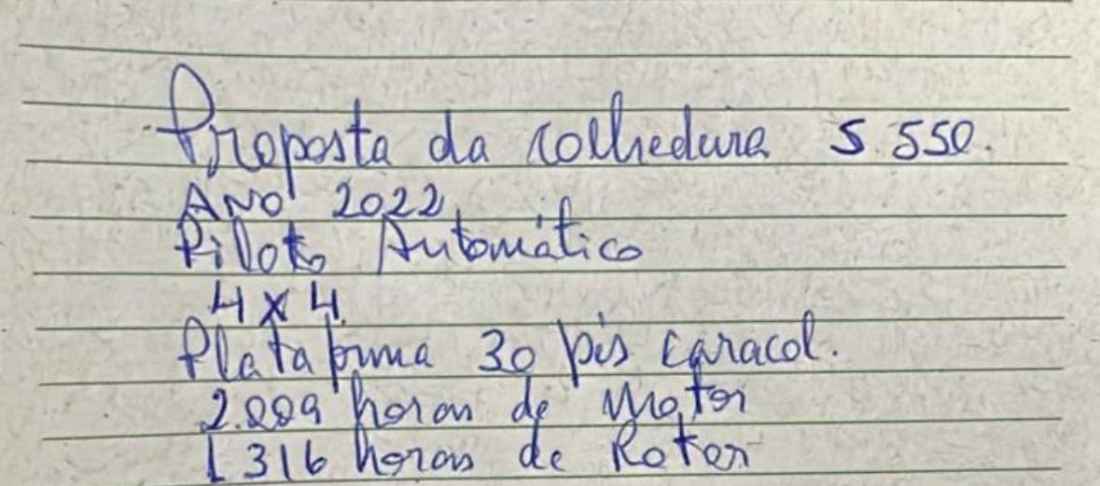 Proposta da colhedura S 550.
Ano 2022
Piloto Automático
4x4.
Plataforma 30 pés caracol.
2.009 horas de motor
1316 horas de Rotor